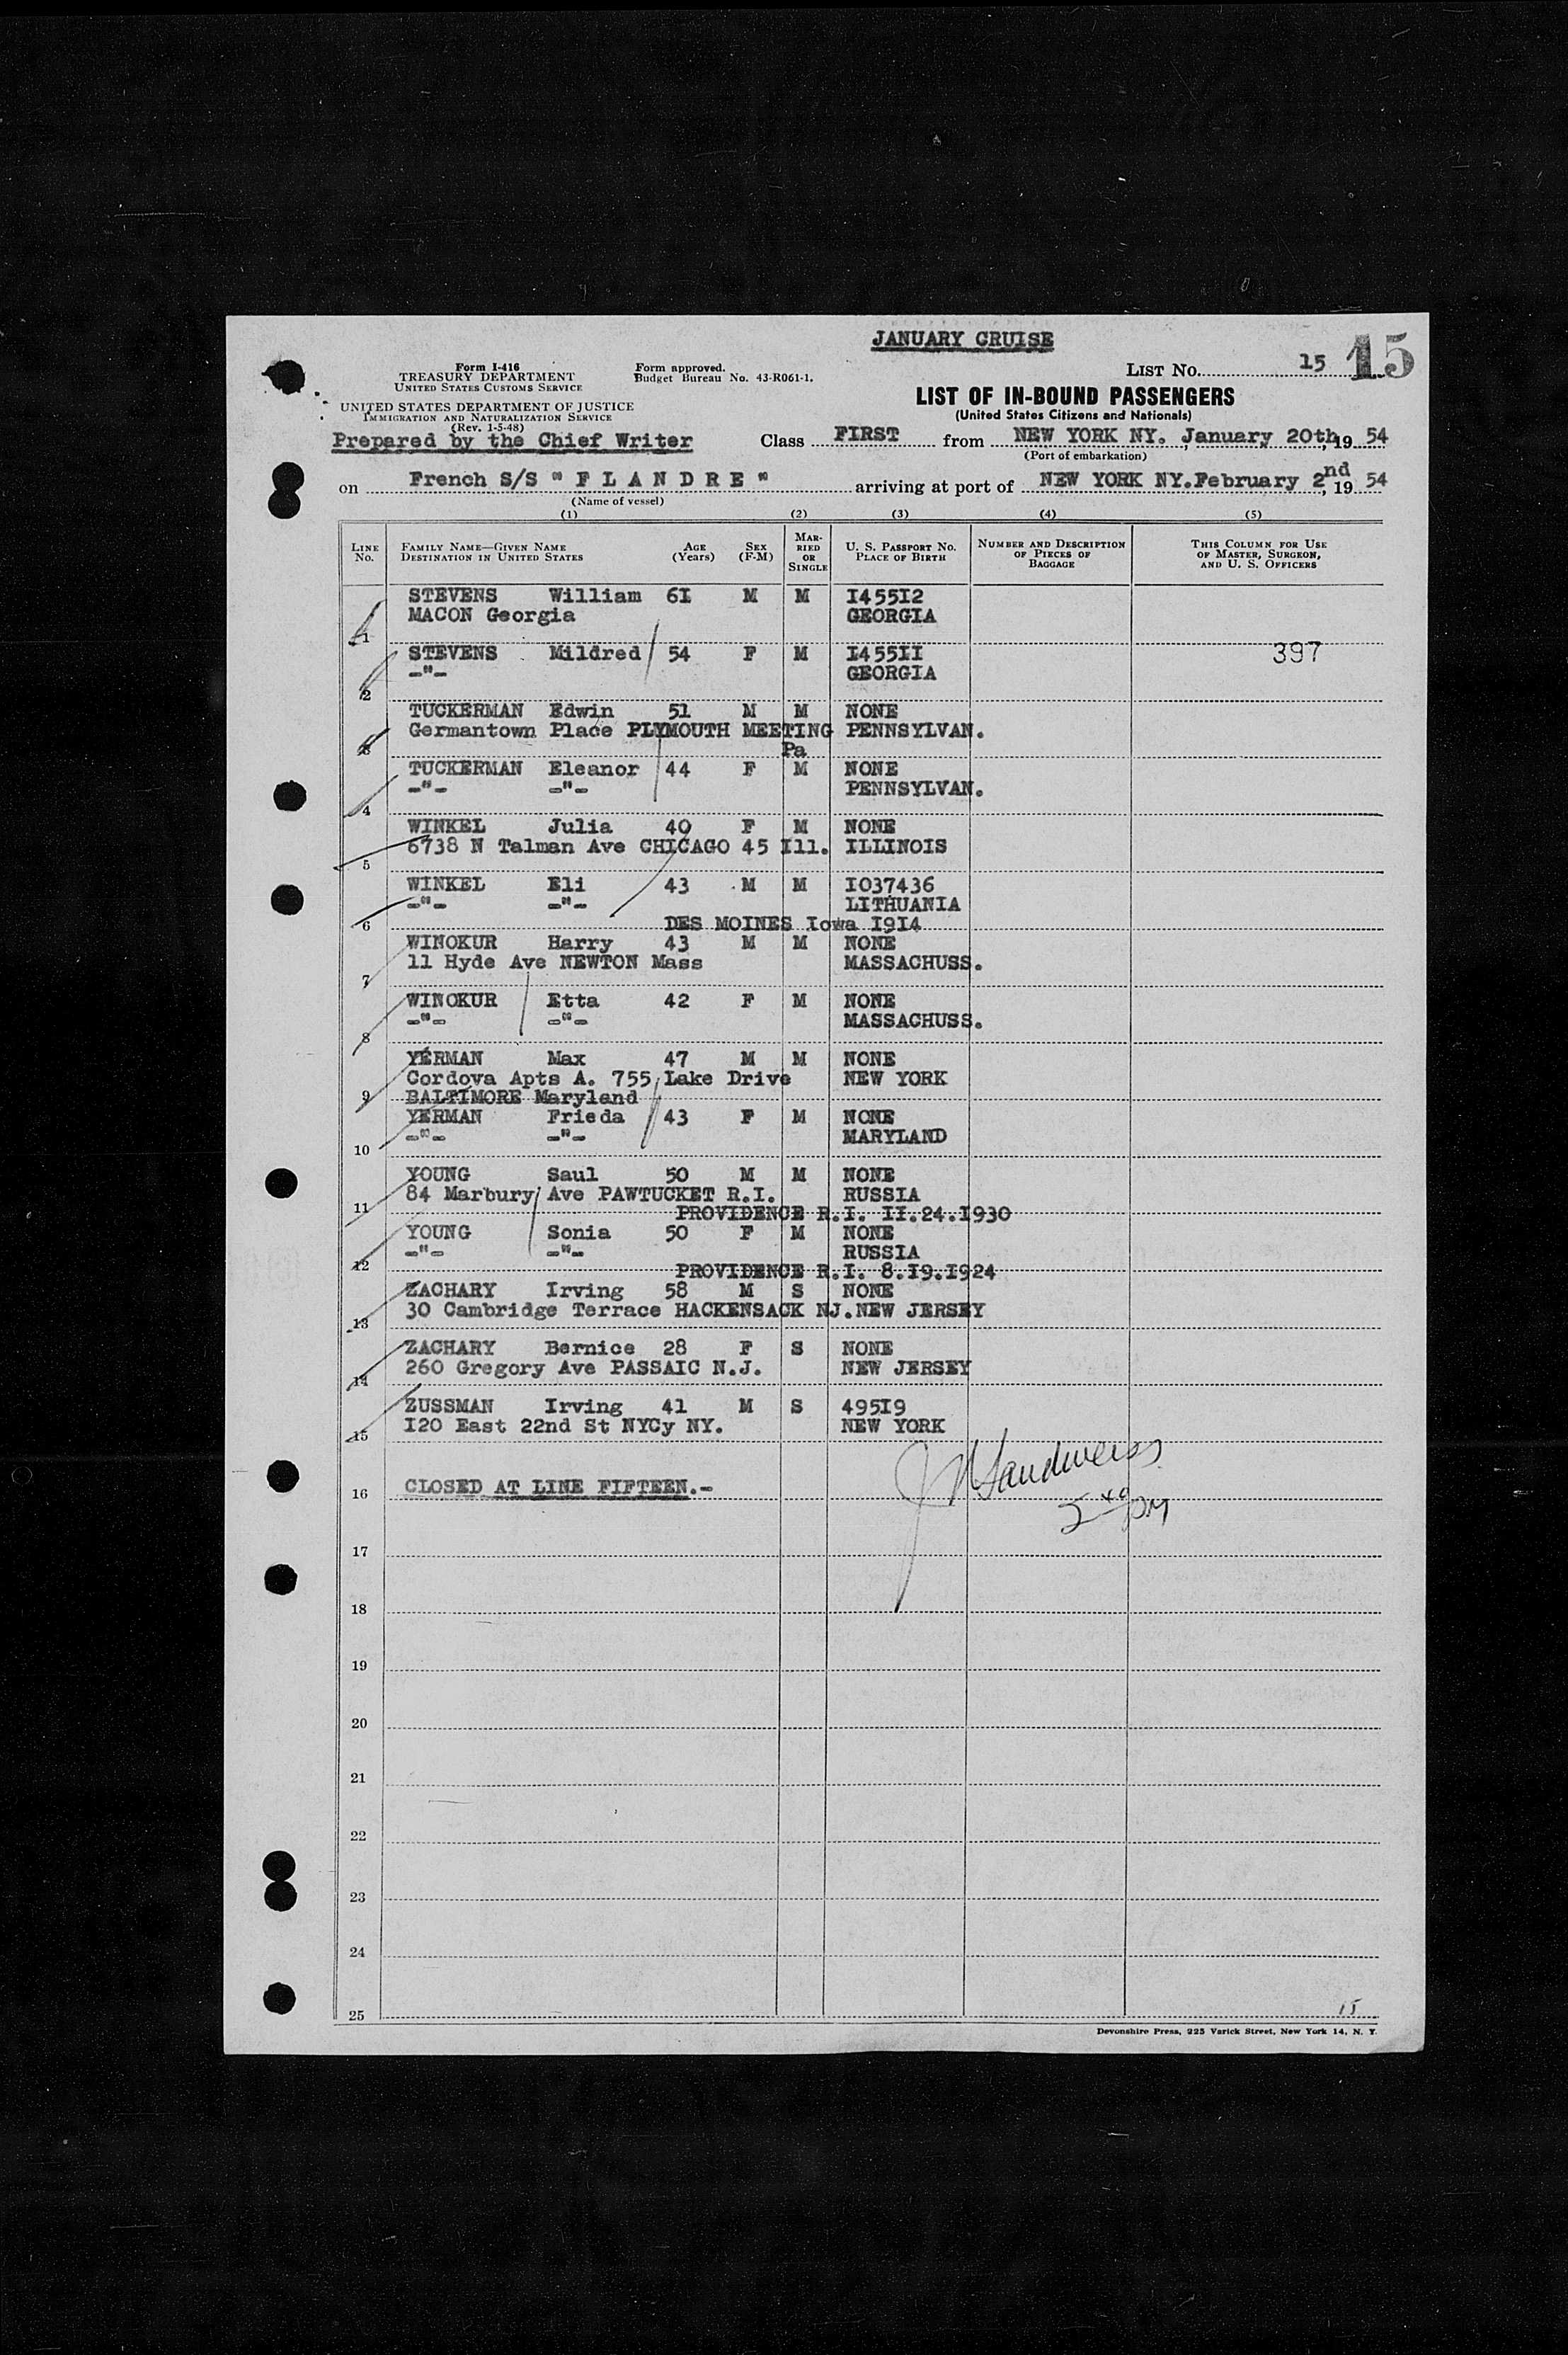 JANUARY CRUISE
Form I-416
TREASURY DEPARTMENT
UNITED STATES CUSTOMS SERVICE
Form approved.
Budget Bureau No. 43-R061-1.
LIST NO. 15 15
UNITED STATES DEPARTMENT OF JUSTICE
IMMIGRATION AND NATURALIZATION SERVICE
(Rev. 1-5-48)
LIST OF IN-BOUND PASSENGERS
(United States Citizens and Nationals)
Prepared by the Chief Writer
Class FIRST from NEW YORK NY. January 20th, 19 54
(Port of embarkation)
on French S/S " F L A N D R E " arriving at port of NEW YORK NY. February 2nd, 19 54
(Name of vessel)
(1) (2) (3) (4) (5)
LINE No. FAMILY NAME—GIVEN NAME DESTINATION IN UNITED STATES AGE (Years) SEX (F-M) MARRIED OR SINGLE U. S. PASSPORT NO. PLACE OF BIRTH NUMBER AND DESCRIPTION OF PIECES OF BAGGAGE THIS COLUMN FOR USE OF MASTER, SURGEON, AND U. S. OFFICERS
STEVENS William 6I M M I455I2
MACON Georgia GEORGIA
1
STEVENS Mildred 54 F M I455II 397
-"- GEORGIA
2
TUCKERMAN Edwin 51 M M NONE
Germantown Place PLYMOUTH MEETING PENNSYLVAN.
3 Pa
TUCKERMAN Eleanor 44 F M NONE
-"- -"- PENNSYLVAN.
4
WINKEL Julia 40 F M NONE
6738 N Talman Ave CHICAGO 45 Ill. ILLINOIS
5
WINKEL Eli 43 M M I037436
-"- -"- LITHUANIA
6 DES MOINES Iowa I9I4
WINOKUR Harry 43 M M NONE
11 Hyde Ave NEWTON Mass MASSACHUSS.
7
WINOKUR Etta 42 F M NONE
-"- -"- MASSACHUSS.
8
YERMAN Max 47 M M NONE
Cordova Apts A. 755 Lake Drive NEW YORK
9 BALTIMORE Maryland
YERMAN Frieda 43 F M NONE
-"- -"- MARYLAND
10
YOUNG Saul 50 M M NONE
84 Marbury Ave PAWTUCKET R.I. RUSSIA
11 PROVIDENCE R.I. II.24.I930
YOUNG Sonia 50 F M NONE
-"- -"- RUSSIA
12 PROVIDENCE R.I. 8.I9.I924
ZACHARY Irving 58 M S NONE
30 Cambridge Terrace HACKENSACK NJ. NEW JERSEY
13
ZACHARY Bernice 28 F S NONE
260 Gregory Ave PASSAIC N.J. NEW JERSEY
14
ZUSSMAN Irving 41 M S 495I9
I20 East 22nd St NYCy NY. NEW YORK
15
16 CLOSED AT LINE FIFTEEN.-
17
18
19
20
21
22
23
24
25
15
Devonshire Press, 225 Varick Street, New York 14, N. Y.